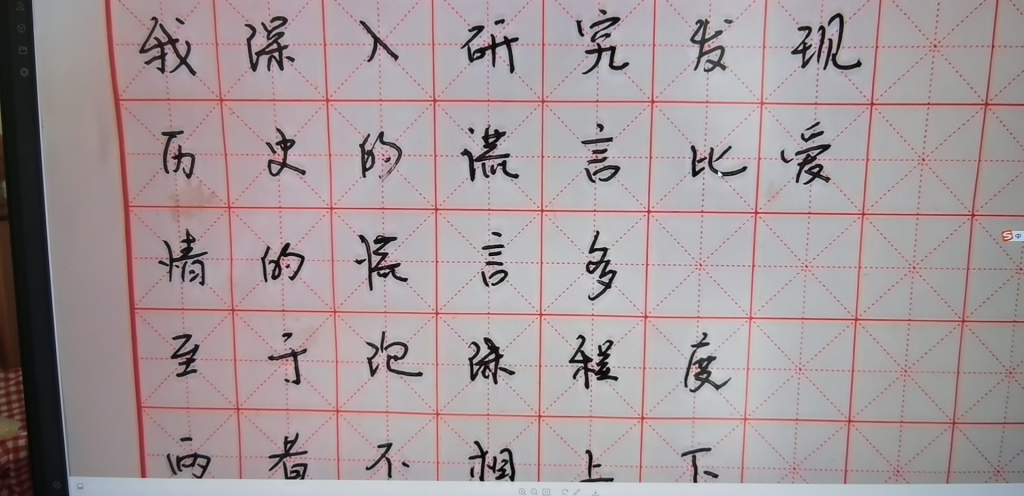 我深入研究发现
历史的谎言比爱
情的慌言多
至于程度
两者不相上下
中